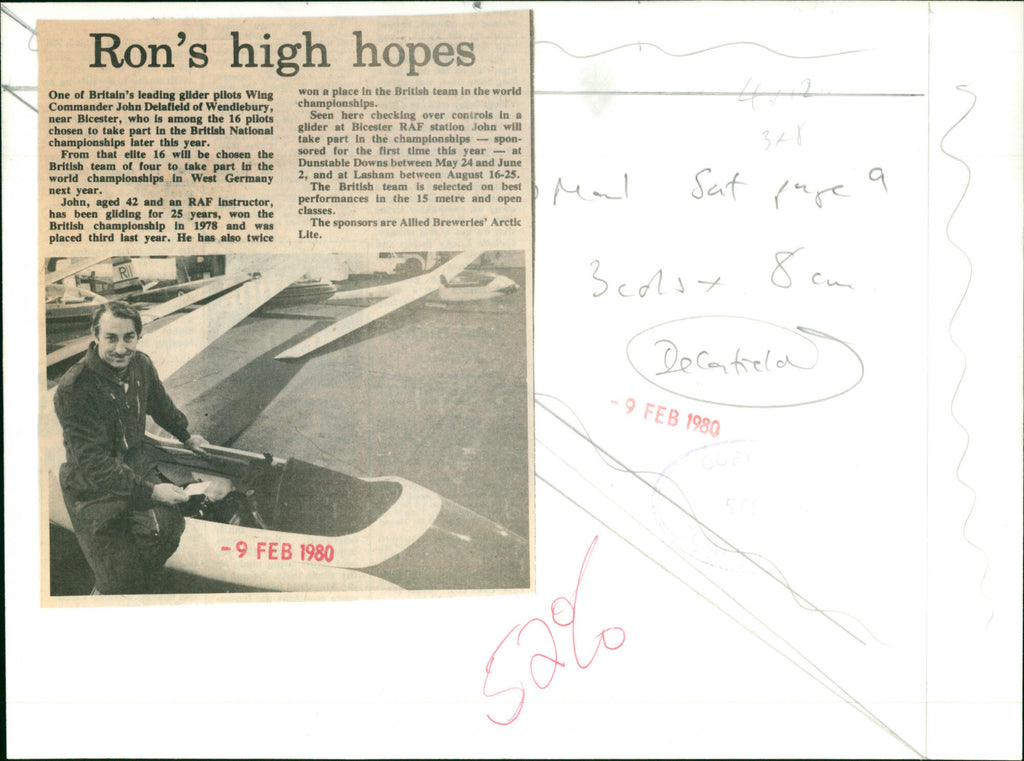 Ron's high hopes
One of Britain's leading glider pilots Wing
Commander John Delafield of Wendlebury,
near Bicester, who is among the 16 pilots
chosen to take part in the British National
championships later this year.
From that elite 16 will be chosen the
British team of four to take part in the
world championships in West Germany
next year.
John, aged 42 and an RAF instructor,
has been gliding for 25 years, won the
British championship in 1978 and was
placed third last year. He has also twice
won a place in the British team in the world
championships.
Seen here checking over controls in a
glider at Bicester RAF station John will
take part in the championships — spon-
sored for the first time this year — at
Dunstable Downs between May 24 and June
2, and at Lasham between August 16-25.
The British team is selected on best
performances in the 15 metre and open
classes.
The sponsors are Allied Breweries' Arctic
Lite.
R11
-9 FEB 1980
3x8
Sat page 9
3 cols x 8 cm
Delafield
-9 FEB 1980
COPY
52%